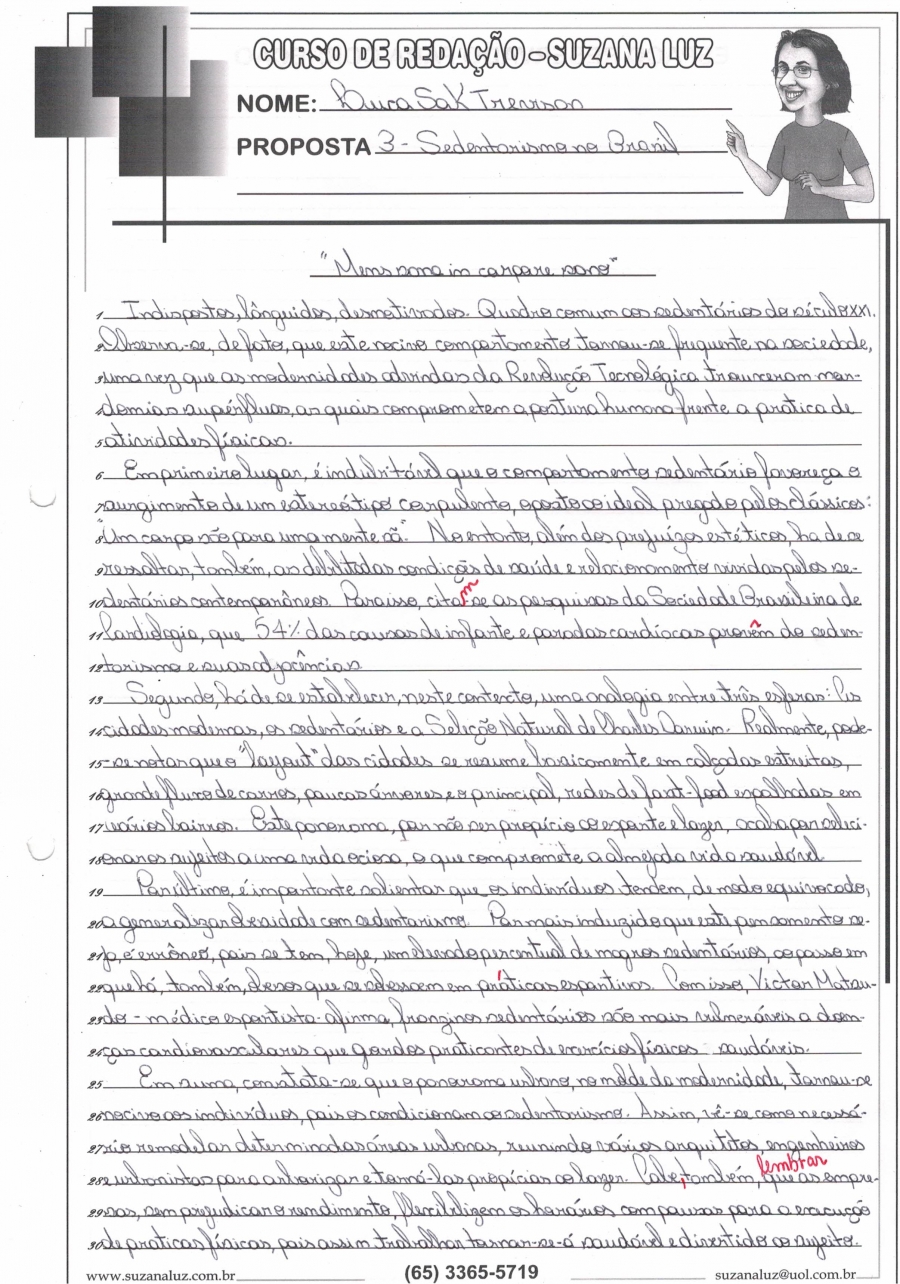 CURSO DE REDAÇÃO - SUZANA LUZ
NOME:
PROPOSTA 3 - Sedentarismo no Brasil
"Mens sana in corpore sano"
1 Indispostos, lânguidos, desmotivados. Quadro comum aos sedentários do século XXI.
2 Observa-se, de fato, que este nocivo comportamento tornou-se frequente na sociedade,
3 uma vez que as modernidades advindas da Revolução Tecnológica trouxeram mor-
4 domias supérfluas, as quais comprometem a postura humana frente a prática de
5 atividades físicas.
6 Em primeiro lugar, é indubitável que o comportamento sedentário favoreça o
7 surgimento de um estereótipo corpulento, oposto ao ideal pregado pelos clássicos:
8 "Um corpo são para uma mente sã". No entanto, além dos prejuízos estéticos, ha de se
9 ressaltar, também, as debilitadas condições de saúde e relacionamento vividas pelos se-
10 dentários contemporâneos. Para isso, citam-se as pesquisas da Sociedade Brasileira de
11 Cardiologia, que 54% das causas de infarte e paradas cardíacas provêm do seden-
12 tarismo e suas adjacências
13 Segundo, há de se estabelecer, neste contexto, uma analogia entre três esferas: As
14 cidades modernas, os sedentários e a Seleção Natural de Charles Darwin. Realmente, pode-
15 -se notar que o "layout" das cidades se resume basicamente em calçadas estreitas,
16 grande fluxo de carros, poucas árvores e o principal, redes de fast-food espalhadas em
17 vários bairros. Este panorama, por não ser propício ao esporte e lazer, acaba por seleci-
18 onar os sujeitos a uma vida ociosa, o que compromete a almejada vida saudável
19 Por último, é importante salientar que os indivíduos tendem, de modo equivocado,
20 a generalizar obesidade com sedentarismo. Por mais induzido que este pensamento se-
21 ja, é errôneo, pois se tem, hoje, um elevado percentual de magros sedentários, ao passo em
22 que há, também, obesos que se sobressaem em práticas esportivas. Com isso, Victor Matsu-
23 do - médico esportista - afirma, franzinos sedentários são mais vulneráveis a doen-
24 ças cardiovasculares que gordos praticantes de exercícios físicos saudáveis.
25 Em suma, constata-se que o panorama urbano, no molde da modernidade, tornou-se
26 nocivo aos indivíduos, pois os condicionam ao sedentarismo. Assim, vê-se como necessá-
27 rio remodelar determinadas áreas urbanas, reunindo vários arquitetos, engenheiros
lembrar
28 e urbanistas para arborizar e torná-las propícias ao lazer. Cabe, também, que as empre-
29 sas, sem prejudicar o rendimento, flexibilizem os horários com pausas para a execução
30 de práticas físicas, pois assim trabalhar tornar-se-á saudável e divertido ao sujeito.
www.suzanaluz.com.br (65) 3365-5719 suzanaluz@uol.com.br